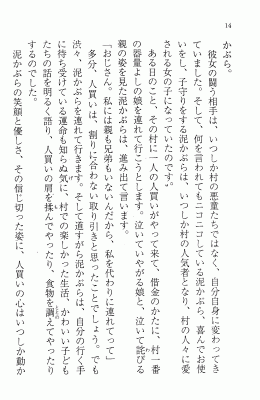 14
かぶら。
彼女の闘う相手は、いつしか村の悪童たちではなく、自分自身に変わってき
ていました。そして、何を言われてもニコニコしている泥かぶら、喜んでお使
いをし、子守りをする泥かぶらは、いつしか村の人気者となり、村の人々に愛
される女の子になっていたのです。
ある日のこと、その村に一人の人買いがやって来て、借金のかたに、村一番
の器量よしの娘を連れて行こうとします。泣いていやがる娘と、泣いて詫びる
親の姿を見た泥かぶらは、進み出て言います。
「おじさん。私には親も兄弟もいないんだから、私を代わりに連れてって」
多分、人買いは、割りに合わない取り引きと思ったことでしょう。でも
渋々、泥かぶらを連れて行きます。そして道すがら泥かぶらは、自分の行く手
に待ち受けている運命も知らぬ気に、村での楽しかった生活、かわいい子ども
たちの話を明るく語り、人買いの肩を揉んでやったり、食物を調えてやったり
するのでした。
泥かぶらの笑顔と優しさ、その信じ切った姿に、人買いの心はいつしか動か